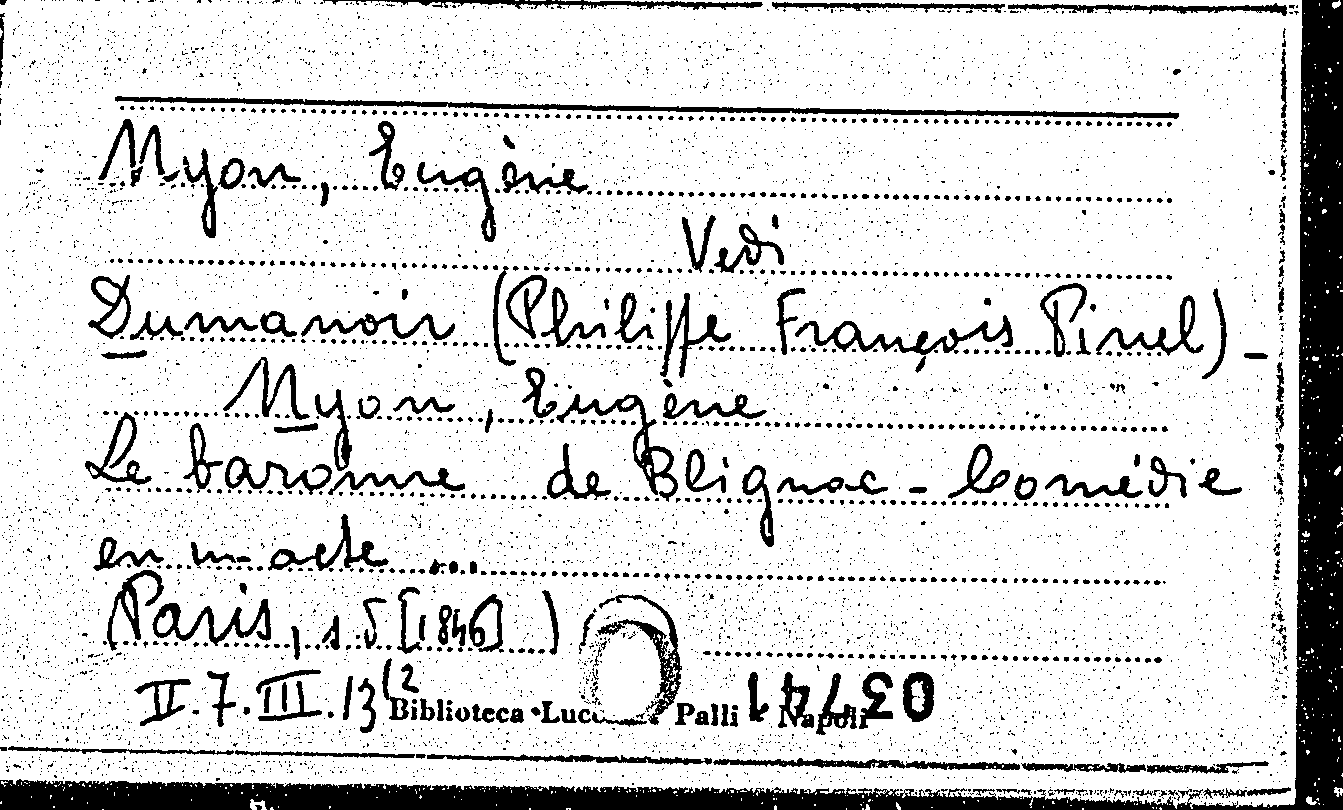 Nyon, Eugène
Vedi
Dumanoir (Philippe François Pinel) -
Nyon, Eugène
Le baronne de Blignac - Comédie
en un acte ...
(Paris, s.d [1846] )
II.7.III.13(2
Biblioteca Palli Napoli